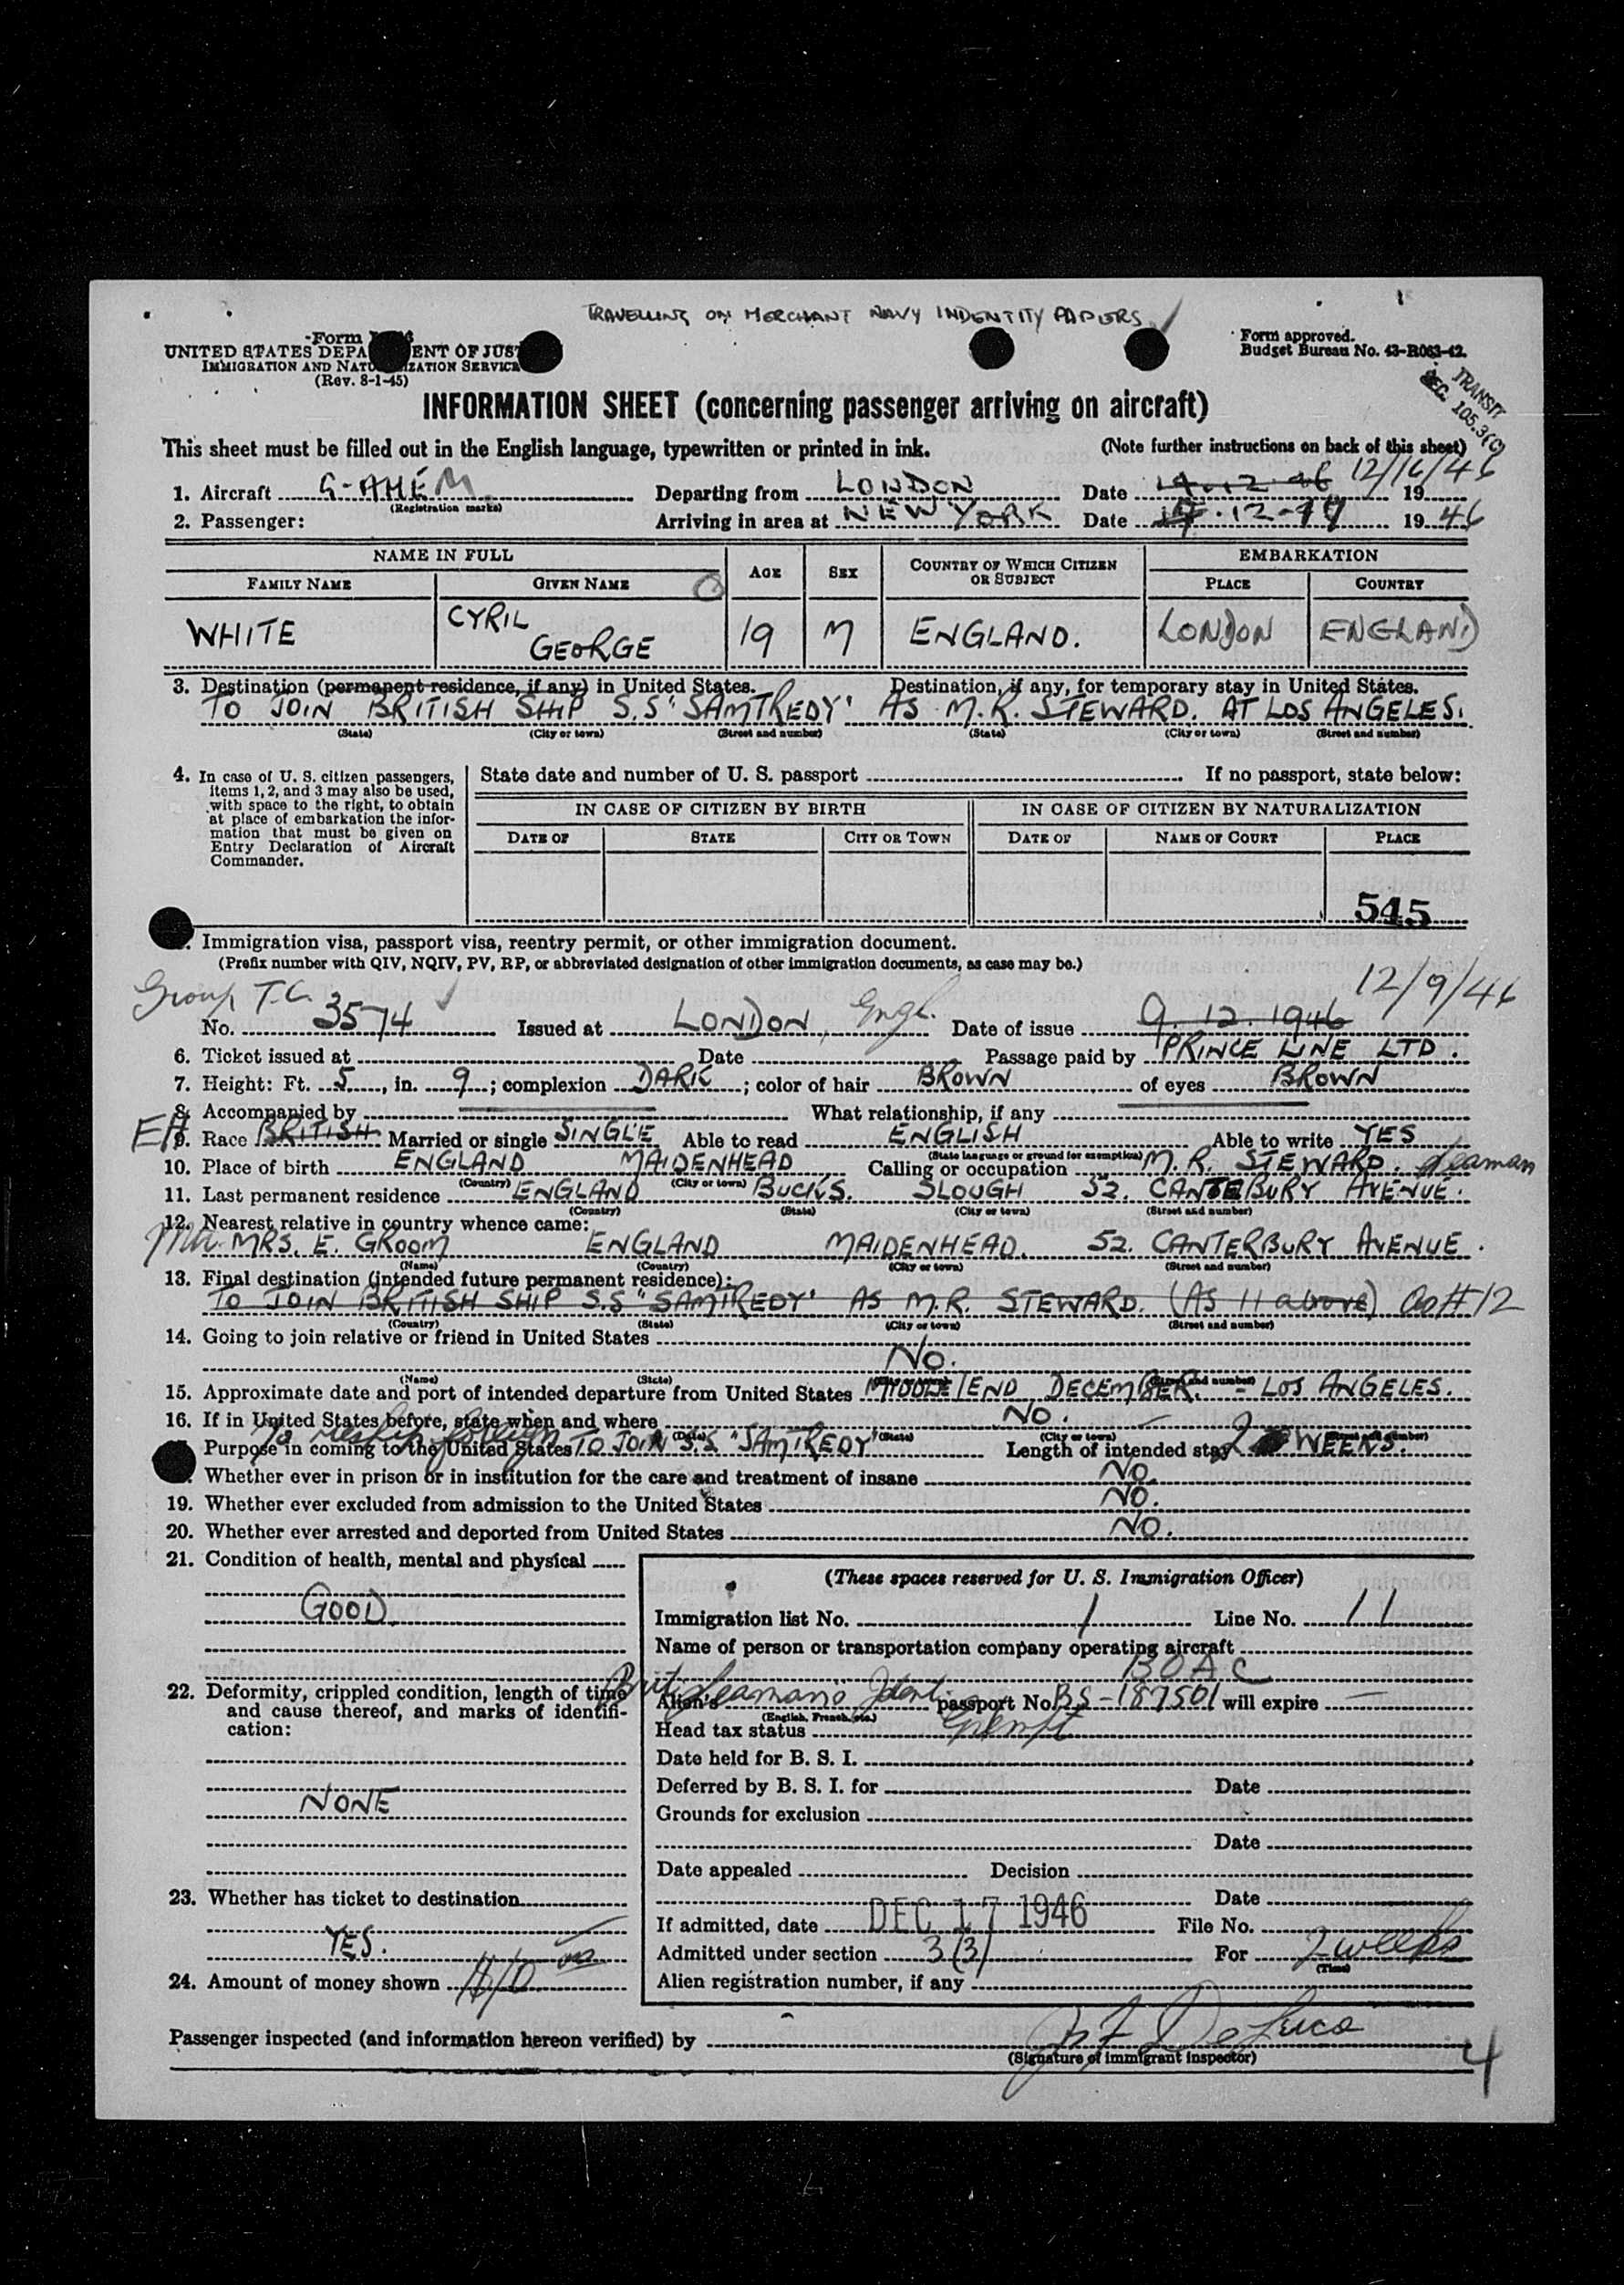 TRAVELLING ON MERCHANT NAVY INDENTITY PAPERS
Form
UNITED STATES DEPA ENT OF JUS
IMMIGRATION AND NATU IZATION SERVICE
(Rev. 8-1-45)
Form approved.
Budget Bureau No. 43-R063-42.
TRANSIT
SEC. 105.3(C)
INFORMATION SHEET (concerning passenger arriving on aircraft)
This sheet must be filled out in the English language, typewritten or printed in ink. (Note further instructions on back of this sheet)
1. Aircraft G-AHEM Departing from LONDON Date 12/16/46 19
(Registration marks)
2. Passenger: Arriving in area at NEW YORK Date 17.12-17 1946
NAME IN FULL AGE SEX COUNTRY OF WHICH CITIZEN OR SUBJECT EMBARKATION
FAMILY NAME GIVEN NAME PLACE COUNTRY
WHITE CYRIL GEORGE 19 M ENGLAND. LONDON ENGLAND
3. Destination (permanent residence, if any) in United States. Destination, if any, for temporary stay in United States.
TO JOIN BRITISH SHIP S.S "SAMTREDY" AS M.R. STEWARD. AT LOS ANGELES.
(State) (City or town) (Street and number) (State) (City or town) (Street and number)
4. In case of U. S. citizen passengers, items 1, 2, and 3 may also be used, with space to the right, to obtain at place of embarkation the information that must be given on Entry Declaration of Aircraft Commander.
State date and number of U. S. passport If no passport, state below:
IN CASE OF CITIZEN BY BIRTH IN CASE OF CITIZEN BY NATURALIZATION
DATE OF STATE CITY OR TOWN DATE OF NAME OF COURT PLACE
545
Immigration visa, passport visa, reentry permit, or other immigration document.
(Prefix number with QIV, NQIV, PV, RP, or abbreviated designation of other immigration documents, as case may be.)
Group T.C. 12/9/46
No. 3574 Issued at LONDON, Engl. Date of issue 9.12.1946
6. Ticket issued at Date Passage paid by PRINCE LINE LTD.
7. Height: Ft. 5, in. 9; complexion DARK; color of hair BROWN of eyes BROWN
8. Accompanied by What relationship, if any
9. Race BRITISH Married or single SINGLE Able to read ENGLISH Able to write YES
(State language or ground for exemption)
10. Place of birth ENGLAND MAIDENHEAD Calling or occupation M.R. STEWARD. Seaman
(Country) (City or town)
11. Last permanent residence ENGLAND BUCKS. SLOUGH 52. CANTERBURY AVENUE.
(Country) (State) (City or town) (Street and number)
12. Nearest relative in country whence came:
MRS. E. GROOM ENGLAND MAIDENHEAD. 52. CANTERBURY AVENUE.
(Name) (Country) (City or town) (Street and number)
13. Final destination (intended future permanent residence):
TO JOIN BRITISH SHIP S.S "SAMTREDY" AS M.R. STEWARD. (AS 11 above) as #12
(Country) (State) (City or town) (Street and number)
14. Going to join relative or friend in United States
NO.
(Name) (State) (City or town) (Street and number)
15. Approximate date and port of intended departure from United States MIDDLE/END DECEMBER. - LOS ANGELES.
16. If in United States before, state when and where NO.
(Date) (State) (City or town) (Street and number)
To reship foreign
Purpose in coming to the United States TO JOIN S.S. "SAMTREDY" Length of intended stay 2 WEEKS.
Whether ever in prison or in institution for the care and treatment of insane NO
19. Whether ever excluded from admission to the United States NO.
20. Whether ever arrested and deported from United States NO.
21. Condition of health, mental and physical
GOOD
22. Deformity, crippled condition, length of time and cause thereof, and marks of identification:
NONE
23. Whether has ticket to destination
YES.
24. Amount of money shown
(These spaces reserved for U. S. Immigration Officer)
Immigration list No. 1 Line No. 11
Name of person or transportation company operating aircraft
BOAC
Brit Seaman's Ident.
Alien's passport No. BS-187501 will expire
(English, French, etc.)
Head tax status Exempt
Date held for B. S. I.
Deferred by B. S. I. for Date
Grounds for exclusion
Date
Date appealed Decision
Date
If admitted, date DEC 17 1946 File No.
Admitted under section 3(3) For 2 weeks
(Time)
Alien registration number, if any
Passenger inspected (and information hereon verified) by De Luca
(Signature of immigrant inspector)
4